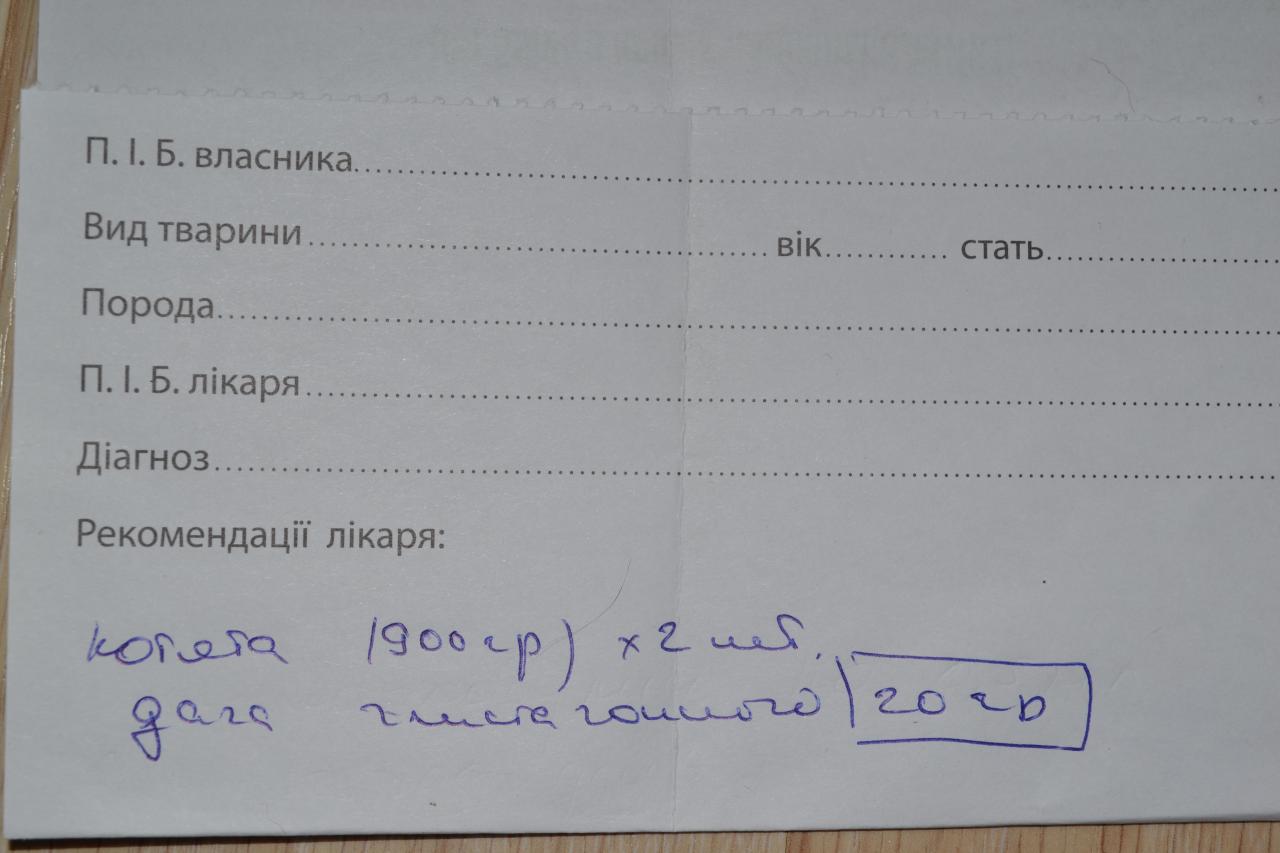 П. І. Б. власника
Вид тварини вік стать
Порода
П. І. Б. лікаря
Діагноз
Рекомендації лікаря:
котята (900 гр) х 2 шт.
дага глистагонного 20 гр